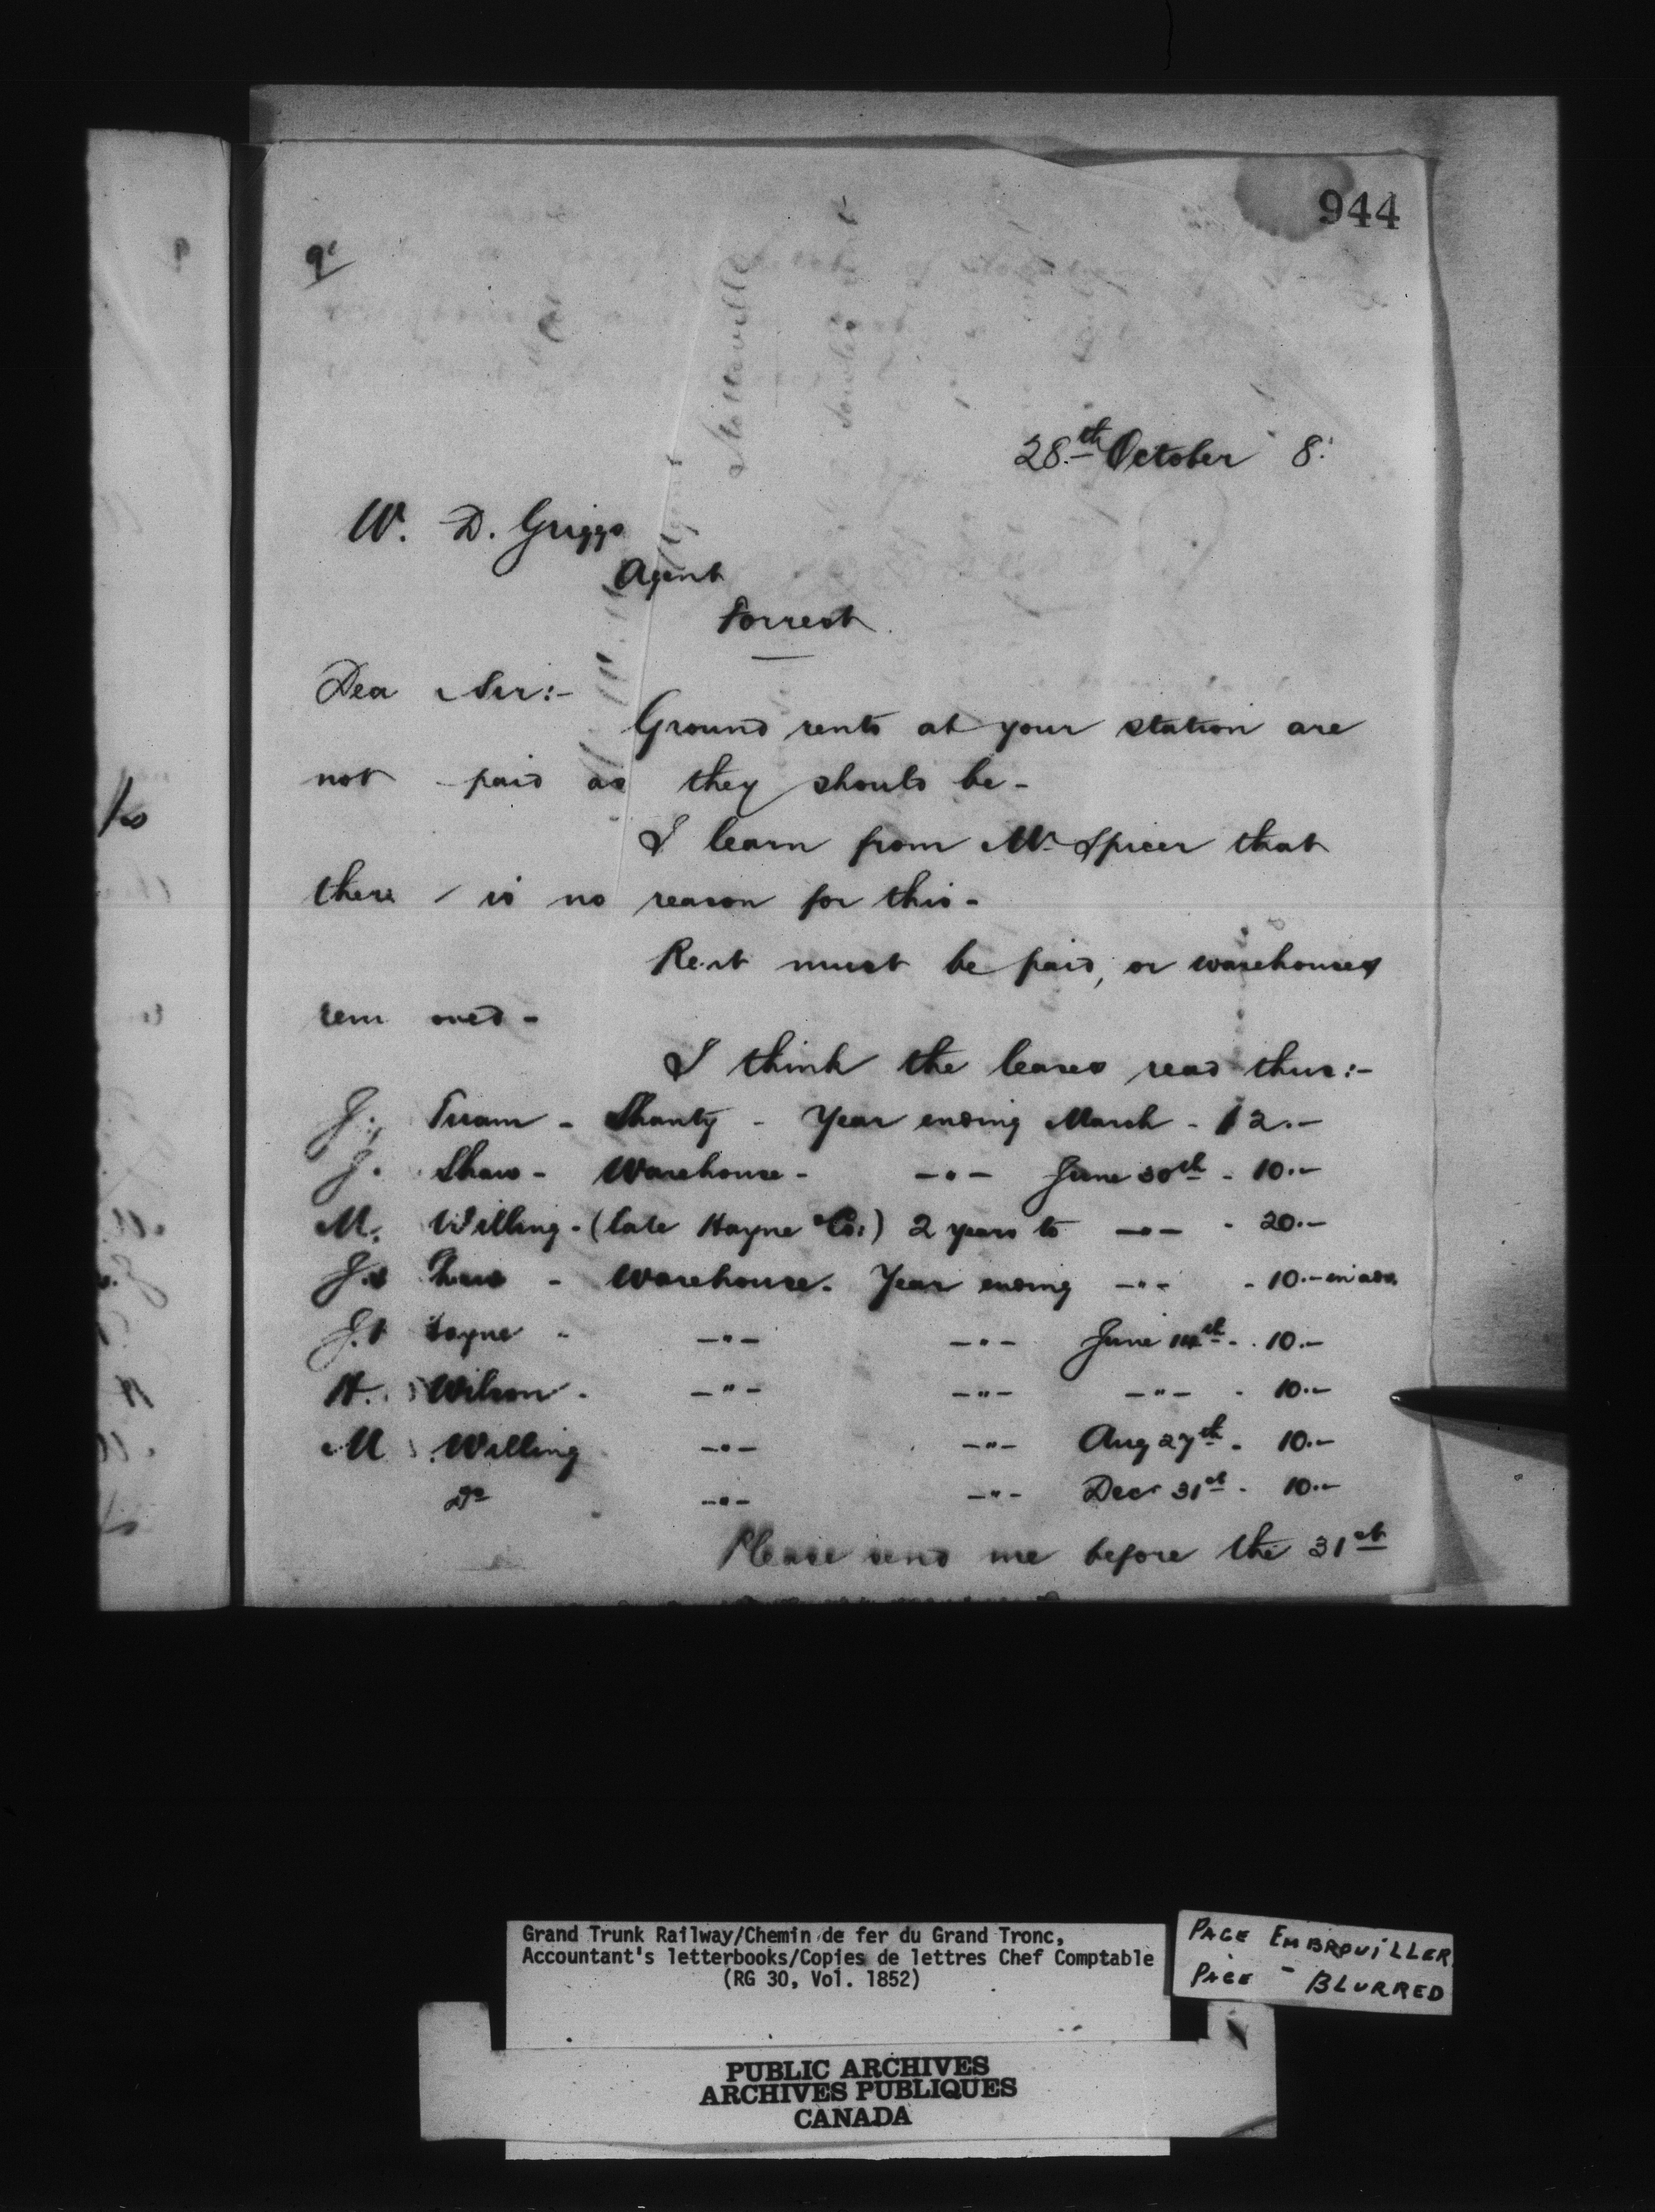 944
28.th October 8.
W. D. Griggs
Agent
Forrest
Dea Sir:-
Ground rents at your station are
not paid as they should be -
I learn from Mr Spicer that
there is no reason for this -
Rent must be paid, or warehouses
rem oved -
I think the leases read thus:-
J. - Shanty - Year ending March - 12.-
J. Shaw - Warehouse - -"- June 30th - 10.-
M. Willing - (late Hayne & Co:) 2 years to -"- - 20.-
J. - Warehouse - Year ending -"- - 10.- in adv.
J. -"- -"- June 14th - 10.-
H. Wilson - -"- -"- -"- - 10.-
M. Willing -"- -"- Aug 27th - 10.-
Do -"- -"- Dec 31st - 10.-
Please send me before the 31st
Grand Trunk Railway/Chemin de fer du Grand Tronc,
Accountant's letterbooks/Copies de lettres Chef Comptable
(RG 30, Vol. 1852)
PAGE EMBROUILLER
PAGE - BLURRED
PUBLIC ARCHIVES
ARCHIVES PUBLIQUES
CANADA